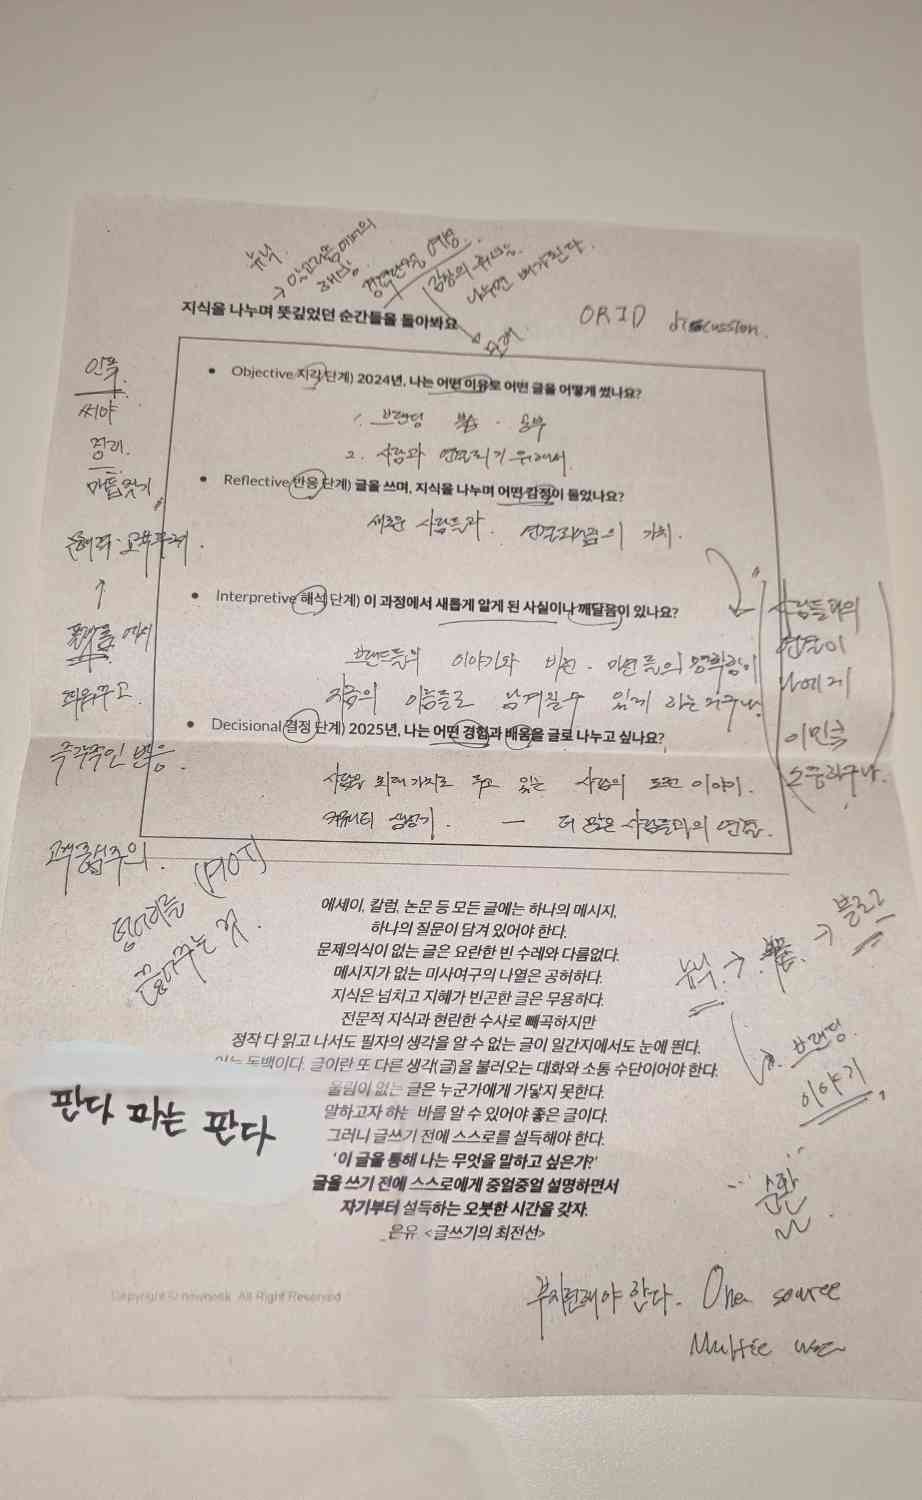 뉴닉.
→ 알고리즘 이야기의
나누면 배가된다.
모래
지식을 나누며 뜻깊었던 순간들을 돌아봐요
ORID discussion.
• Objective 지각 단계) 2024년, 나는 어떤 이유로 어떤 글을 어떻게 썼나요?
1. 브랜딩 공부
2. 사람과 연결되기 위해서.
• Reflective 반응 단계) 글을 쓰며, 지식을 나누며 어떤 감정이 들었나요?
새로운 사람들과. 연결되어짐의 가치.
• Interpretive 해석 단계) 이 과정에서 새롭게 알게 된 사실이나 깨달음이 있나요?
브랜드들의 이야기와 비전. 미션 들의 명확함이
지금의 이름들로 남겨질 수 있게 하는거구나.
• Decisional 결정 단계) 2025년, 나는 어떤 경험과 배움을 글로 나누고 싶나요?
사람을 최대 가치로 두고 있는 사람의 도전 이야기.
커뮤니티 성장기. — 더 많은 사람들과의 연결.
인풋.
써야
정리.
마름짓기
↑
플랫폼 에서
띄워주고.
즉각적인 반응.
고객중심주의.
덩어리를 (PIOT)
끌어주는 것.
사람들과의
연결이
나에게
이만큼
소중하구나.
에세이, 칼럼, 논문 등 모든 글에는 하나의 메시지,
하나의 질문이 담겨 있어야 한다.
문제의식이 없는 글은 요란한 빈 수레와 다름없다.
메시지가 없는 미사여구의 나열은 공허하다.
지식은 넘치고 지혜가 빈곤한 글은 무용하다.
전문적 지식과 현란한 수사로 빼곡하지만
정작 다 읽고 나서도 필자의 생각을 알 수 없는 글이 일간지에서도 눈에 띈다.
이는 독백이다. 글이란 또 다른 생각(글)을 불러오는 대화와 소통 수단이어야 한다.
울림이 없는 글은 누군가에게 가닿지 못한다.
말하고자 하는 바를 알 수 있어야 좋은 글이다.
그러니 글쓰기 전에 스스로를 설득해야 한다.
'이 글을 통해 나는 무엇을 말하고 싶은가?'
글을 쓰기 전에 스스로에게 중얼중얼 설명하면서
자기부터 설득하는 오붓한 시간을 갖자.
_은유 <글쓰기의 최전선>
판다 파는 판다
뉴닉. → → 블로그
브랜딩.
이야기
순환
부지런해야 한다. One source
Multie use
Copyright © newneek All Right Reserved